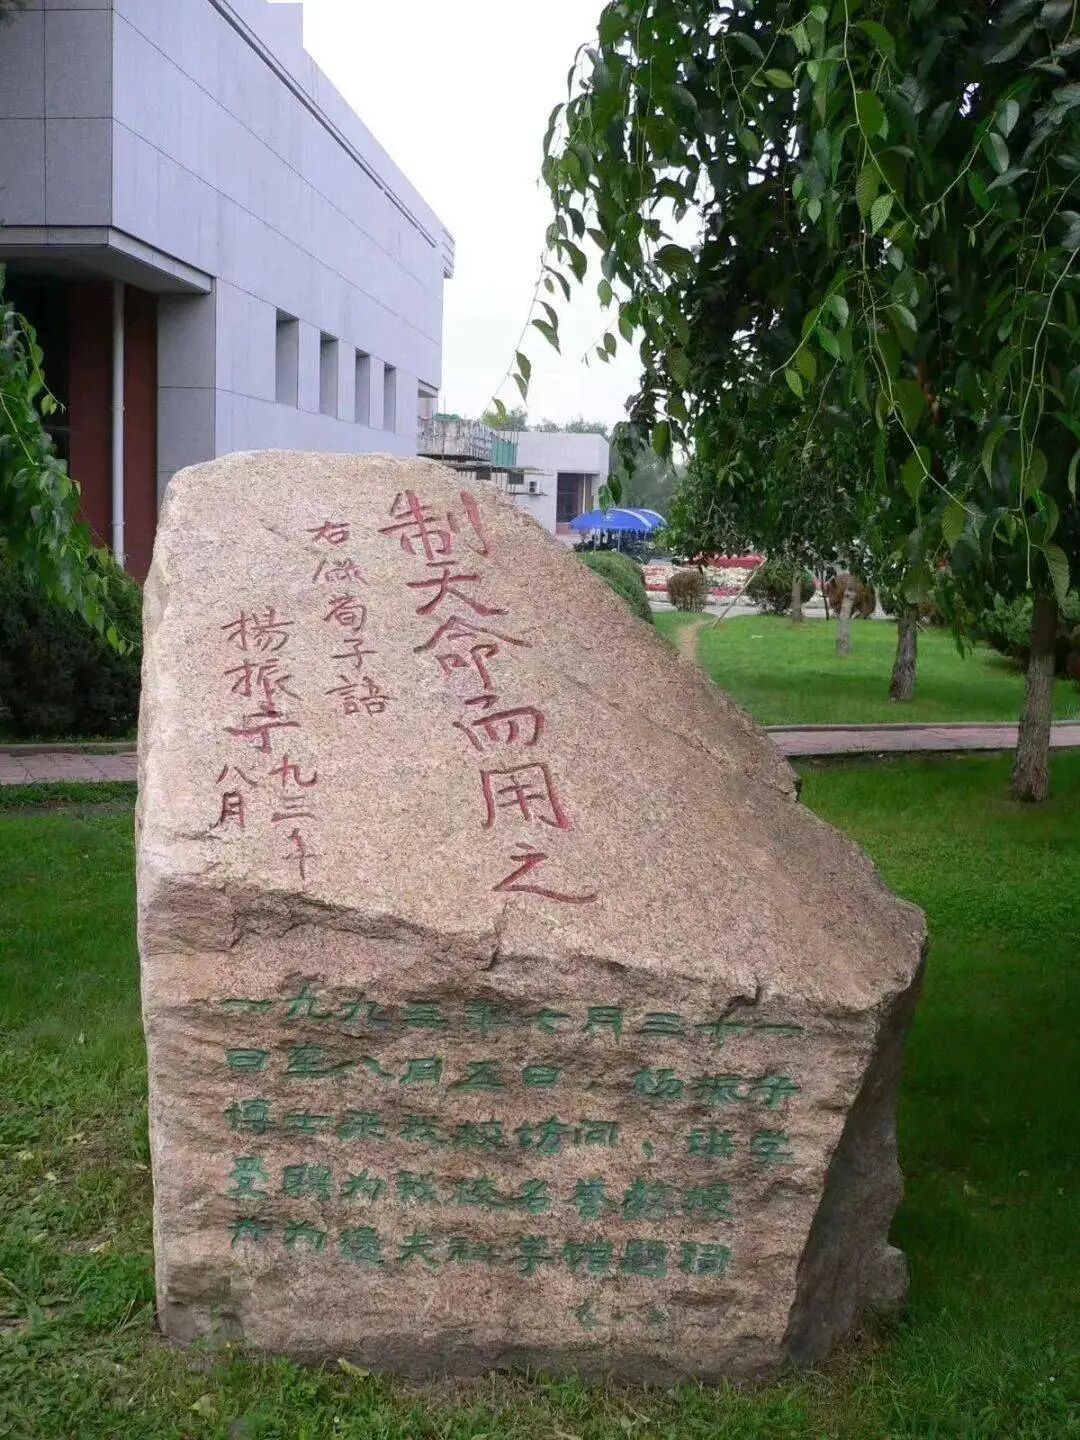 制天命而用之
右錄荀子語
楊振宁
九三年
八月
一九九三年七月三十一
日至八月五日，杨振宁
博士来我校访问、讲学
受聘为我校名誉教授
并为逸夫科学馆题词